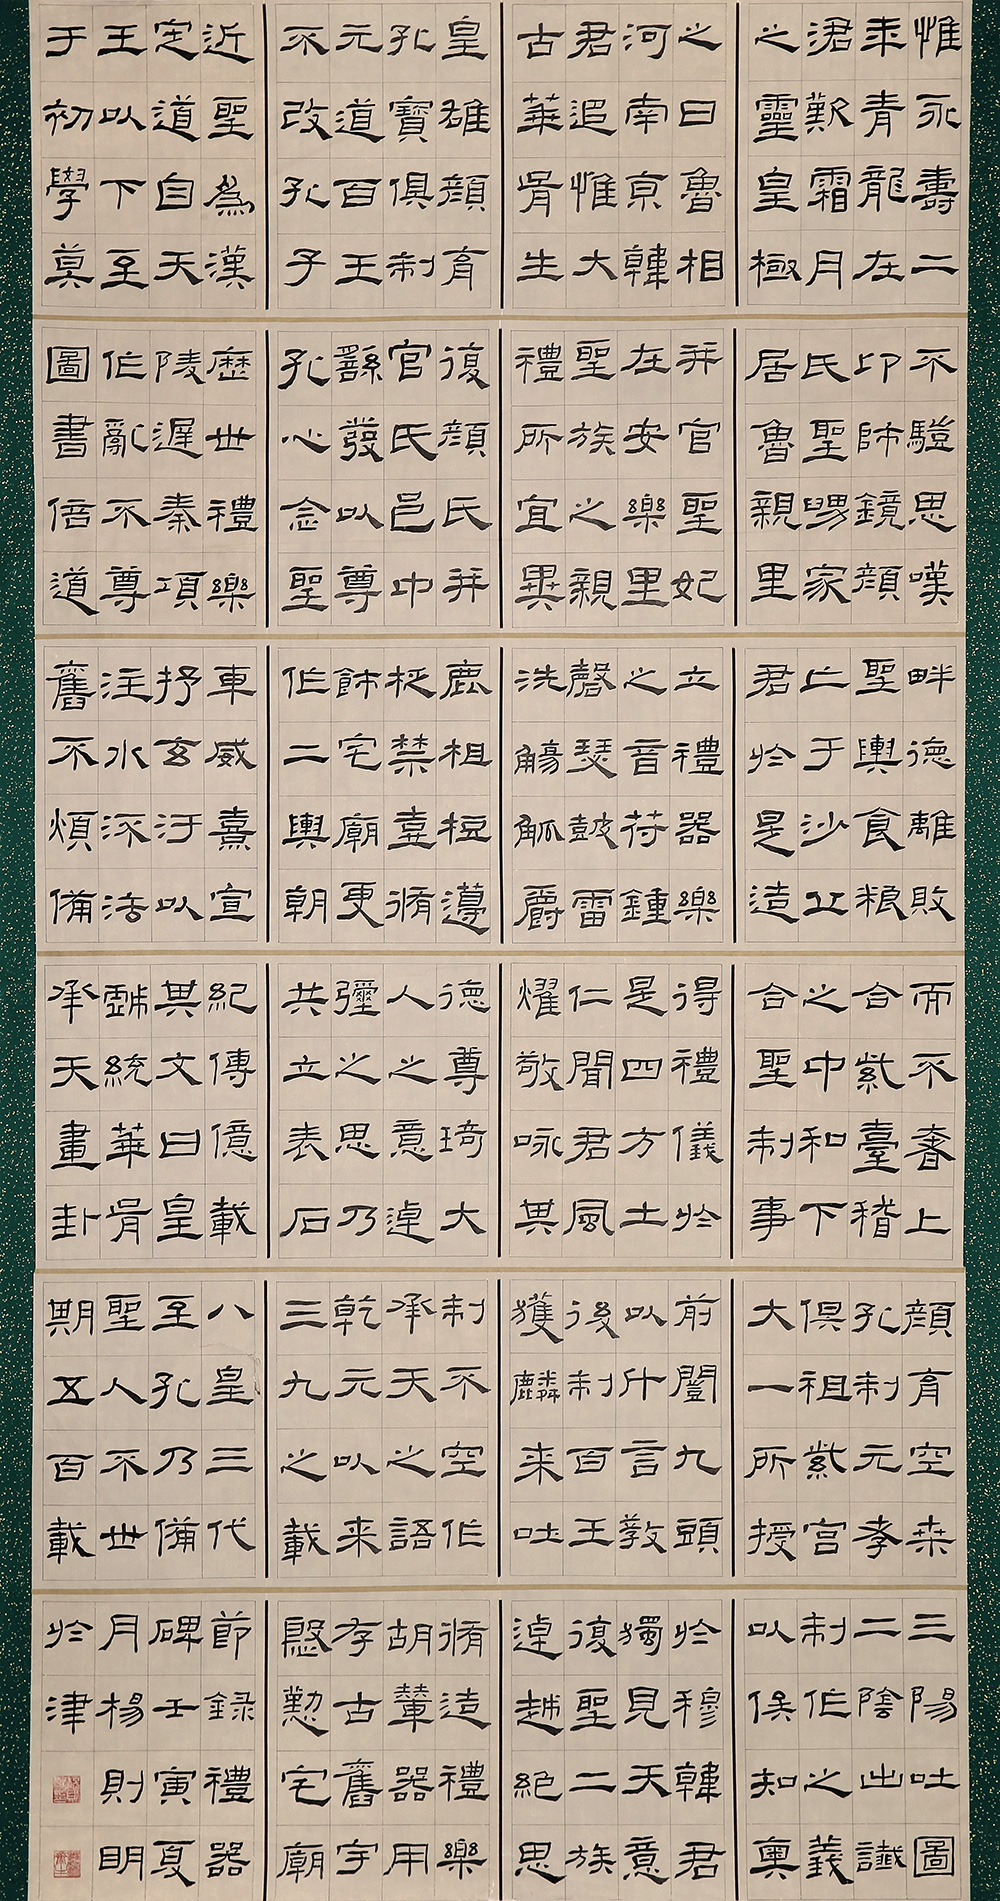 惟永壽二
年青龍在
涒歎霜月
之靈皇極
之日魯相
河南京韓
君追惟大
古華胥生
皇雄顏育
孔寶俱制
元道百王
不改孔子
近聖為漢
定道自天
王以下至
于初學莫
不驗思嘆
卬師鏡顏
氏聖舅家
居魯親里
并官聖妃
在安樂里
聖族之親
禮所宜異
復顏氏并
官氏邑中
繇發以尊
孔心念聖
歷世禮樂
陵遲秦項
作亂不尊
圖書倍道
畔德離敗
聖輿食粮
亡于沙丘
君於是造
立禮器樂
之音符鍾
磬瑟鼓雷
洗觴觚爵
鹿柤梪籩
柉禁壺脩
飾宅廟更
作二輿朝
車威熹宣
抒玄汙以
注水流法
舊不煩備
而不奢上
合紫臺稽
之中和下
合聖制事
得禮儀於
是四方士
仁聞君風
燿敬咏其
德尊琦大
人之意逴
彌之思乃
共立表石
紀傳億載
其文曰皇
戲統華胥
承天畫卦
顏育空桑
孔制元孝
俱祖紫宮
大一所授
前闓九頭
以什言教
後制百王
獲麟来吐
制不空作
承天之語
乾元以来
三九之載
八皇三代
至孔乃備
聖人不世
期五百載
三陽吐圖
二陰出讖
制作之義
以俟知奧
於穆韓君
獨見天意
復聖二族
逴越絕思
脩造禮樂
胡輦器用
存古舊宇
慇懃宅廟
節録禮器
碑壬寅夏
月楊則明
於津